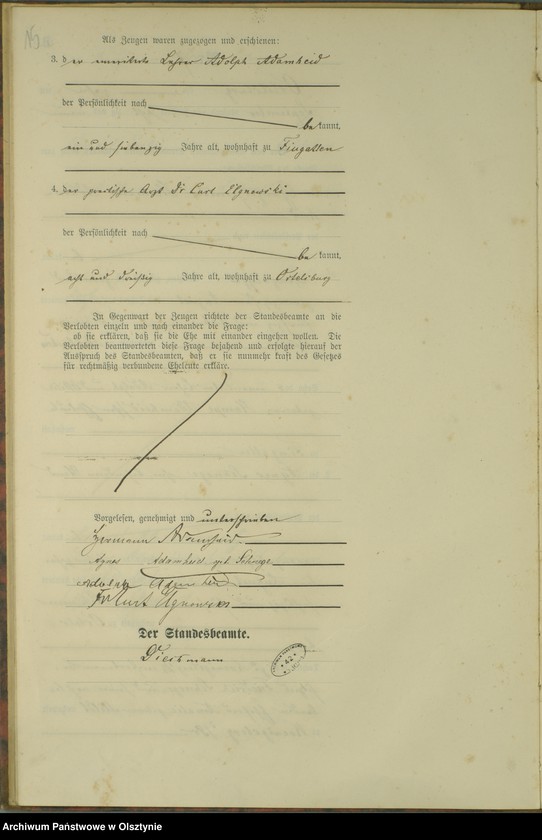 Als Zeugen waren zugezogen und erschienen:
3. der emeritierte Lehrer Adolph Adamheid
der Persönlichkeit nach
bekannt,
ein und siebenzig Jahre alt, wohnhaft zu Fingatten
4. der practische Arzt Dr Curt Elgnowski
der Persönlichkeit nach
bekannt,
acht und dreißig Jahre alt, wohnhaft zu Ortelsburg
In Gegenwart der Zeugen richtete der Standesbeamte an die
Verlobten einzeln und nach einander die Frage:
ob sie erklären, daß sie die Ehe mit einander eingehen wollen. Die
Verlobten beantworteten diese Frage bejahend und erfolgte hierauf der
Ausspruch des Standesbeamten, daß er sie nunmehr kraft des Gesetzes
für rechtmäßig verbundene Eheleute erkläre.
Vorgelesen, genehmigt und unterschrieben
Hermann Adamheid
Agnes Adamheid geb
Adolph Adamheid
Dr Curt
Der Standesbeamte.
Diekmann
Archiwum Państwowe w Olsztynie